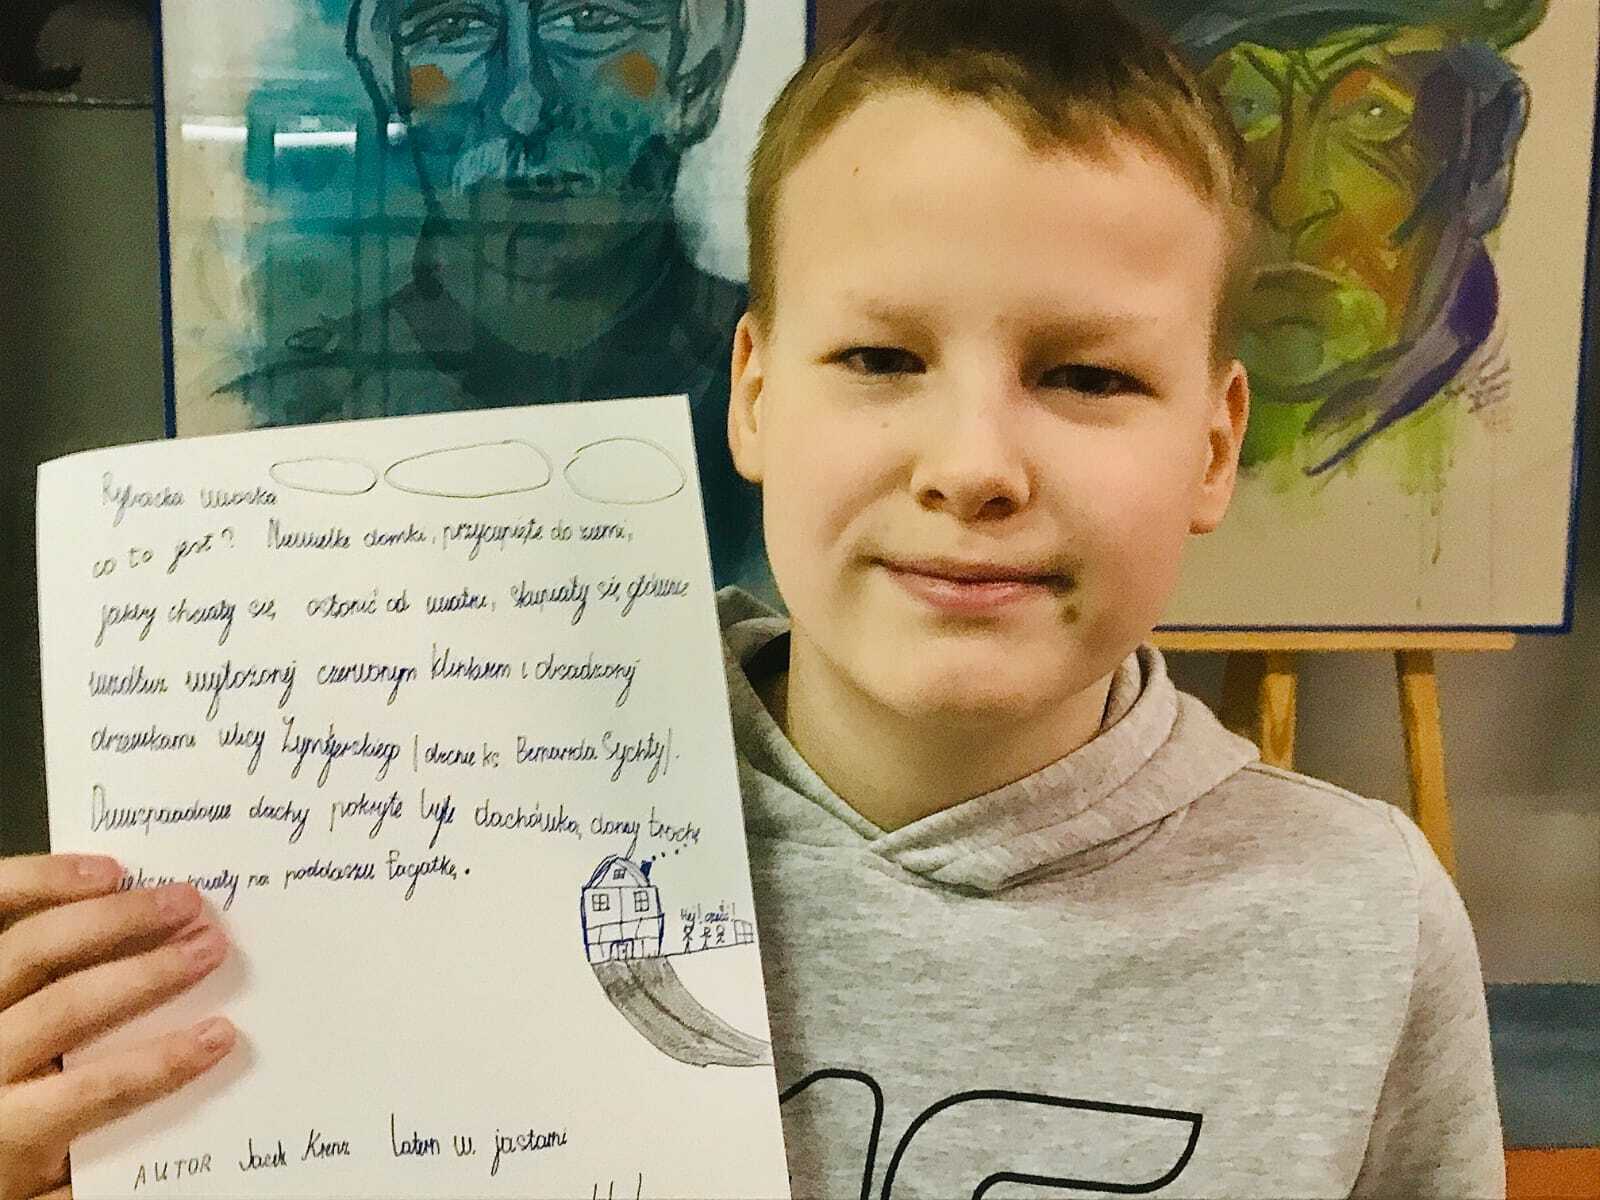 Rybacka wioska
co to jest? Niewielke domki, przycupięte do ziemi,
jakby chciały się osłonić od wiatru, skupiały się głównie
wzdłuż wyłożonej czerwonym klinkierem i obsadzonej
drzewkami ulicy Żymierskiego (obecnie ks. Bernarda Sychty).
Dwuspadowe dachy pokryte były dachówką, domy trochę
miały na poddaszu Łagatkę.
Hej! cześć!
AUTOR Jacek Krenz Latem w jastarni